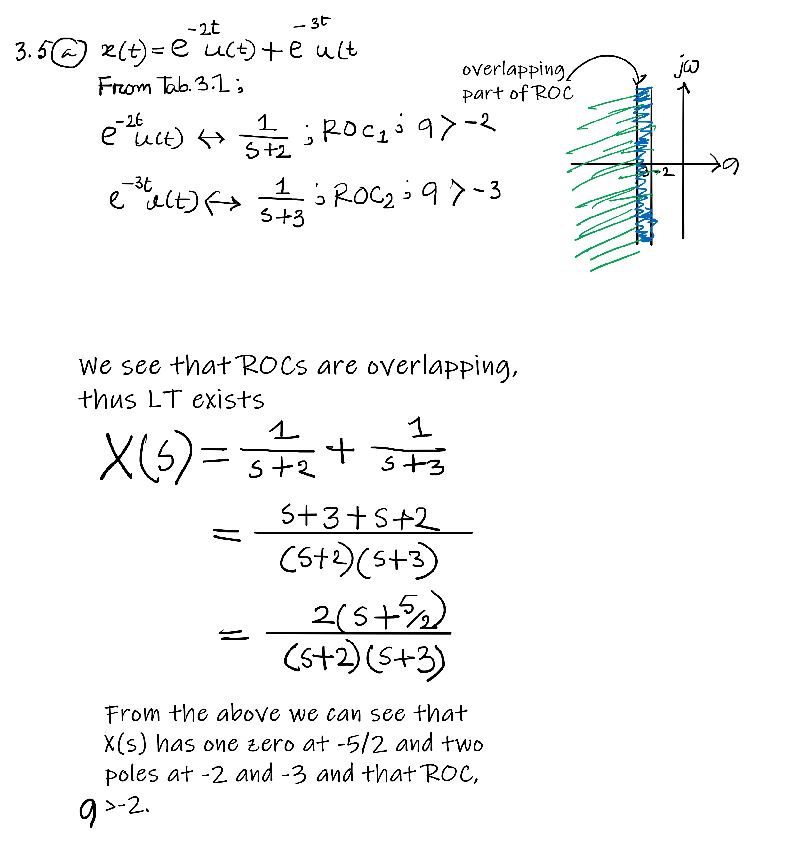 3.5 (a) x(t) = e^-2t u(t) + e^-3t u(t
From Tab. 3.1;
e^-2t u(t) ↔ 1/(s+2) ; ROC1 ; σ > -2
e^-3t u(t) ↔ 1/(s+3) ; ROC2 ; σ > -3
overlapping
part of ROC
jω
-3 -2
σ
We see that ROCs are overlapping,
thus LT exists
X(s) = 1/(s+2) + 1/(s+3)
= (s+3+s+2)/((s+2)(s+3))
= 2(s+5/2)/((s+2)(s+3))
From the above we can see that
X(s) has one zero at -5/2 and two
poles at -2 and -3 and that ROC,
σ >-2.